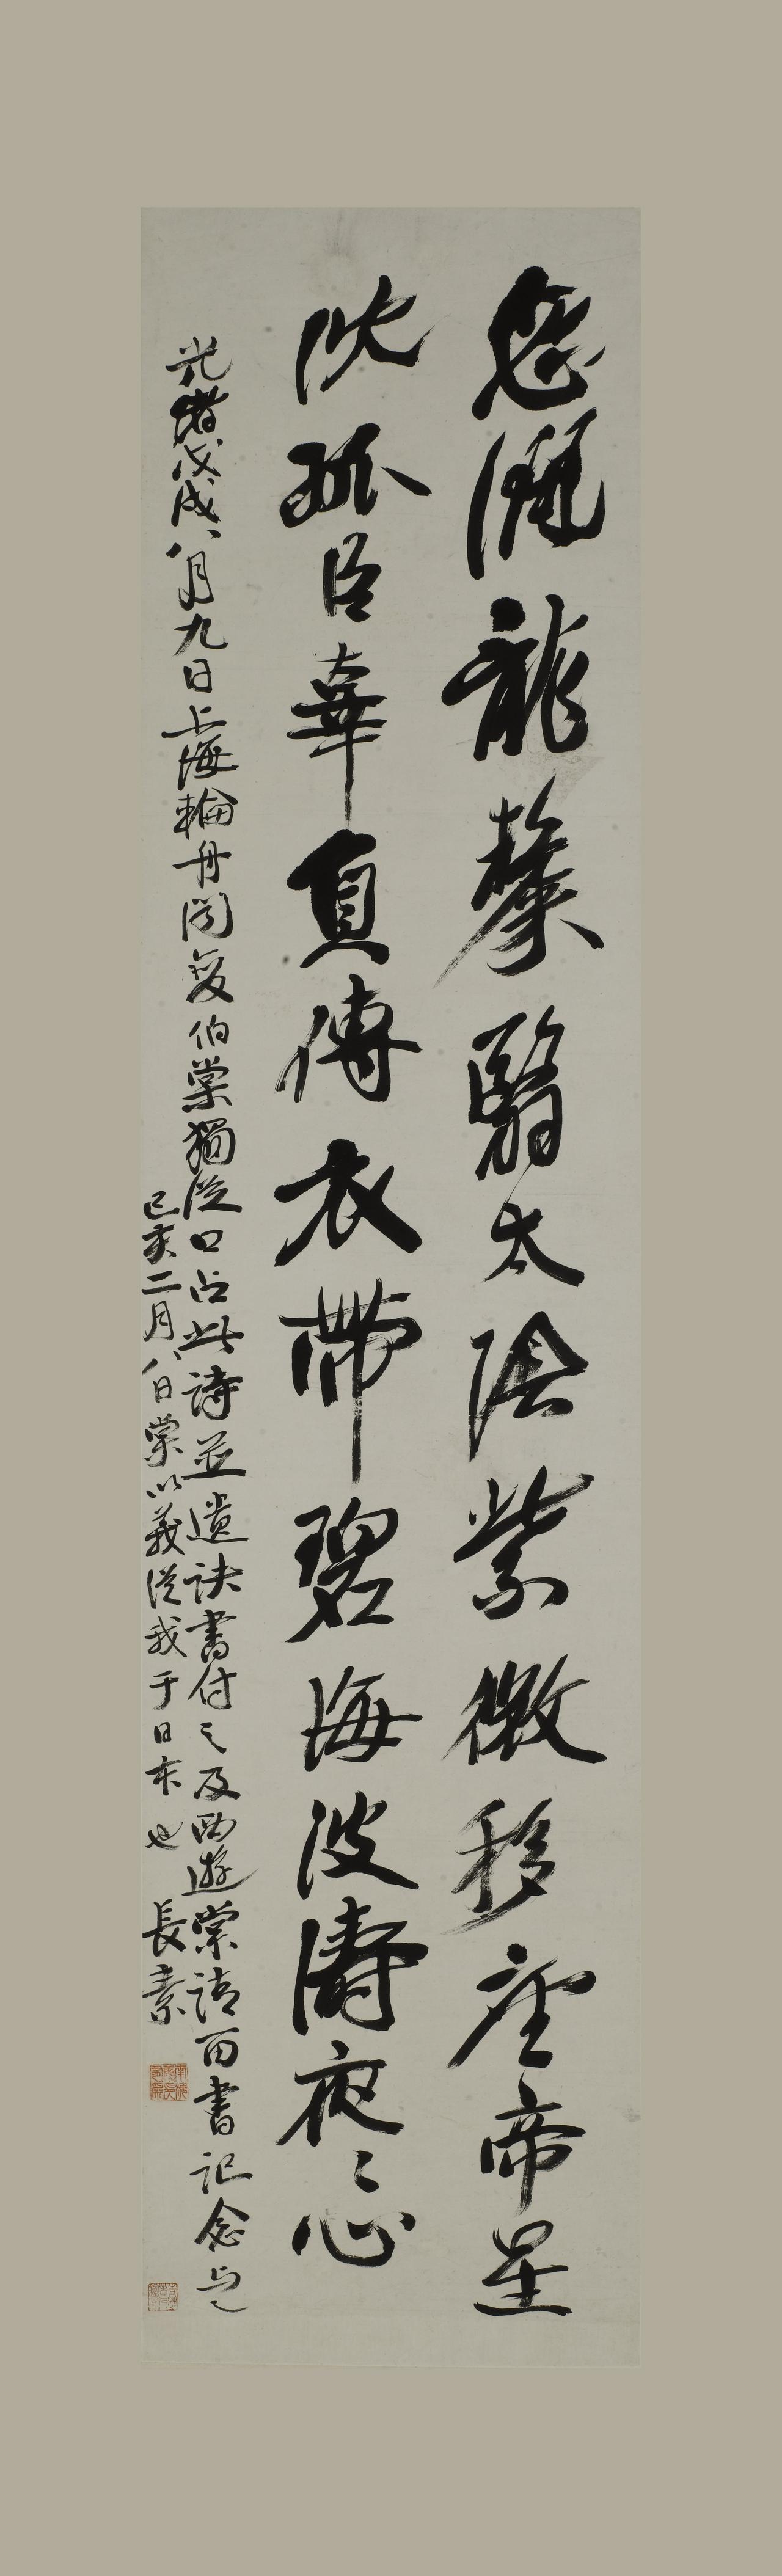 忽灑龍漦翳太陰紫微移座帝星
沈孤臣辜負傳衣帶碧海波濤夜夜心
光緒戊戌八月九日上海輪舟聞變伯棠獨從口占此詩並遺訣書付之及西遊棠請再書記念與之
己亥二月八日棠以義從我于日本也 長素